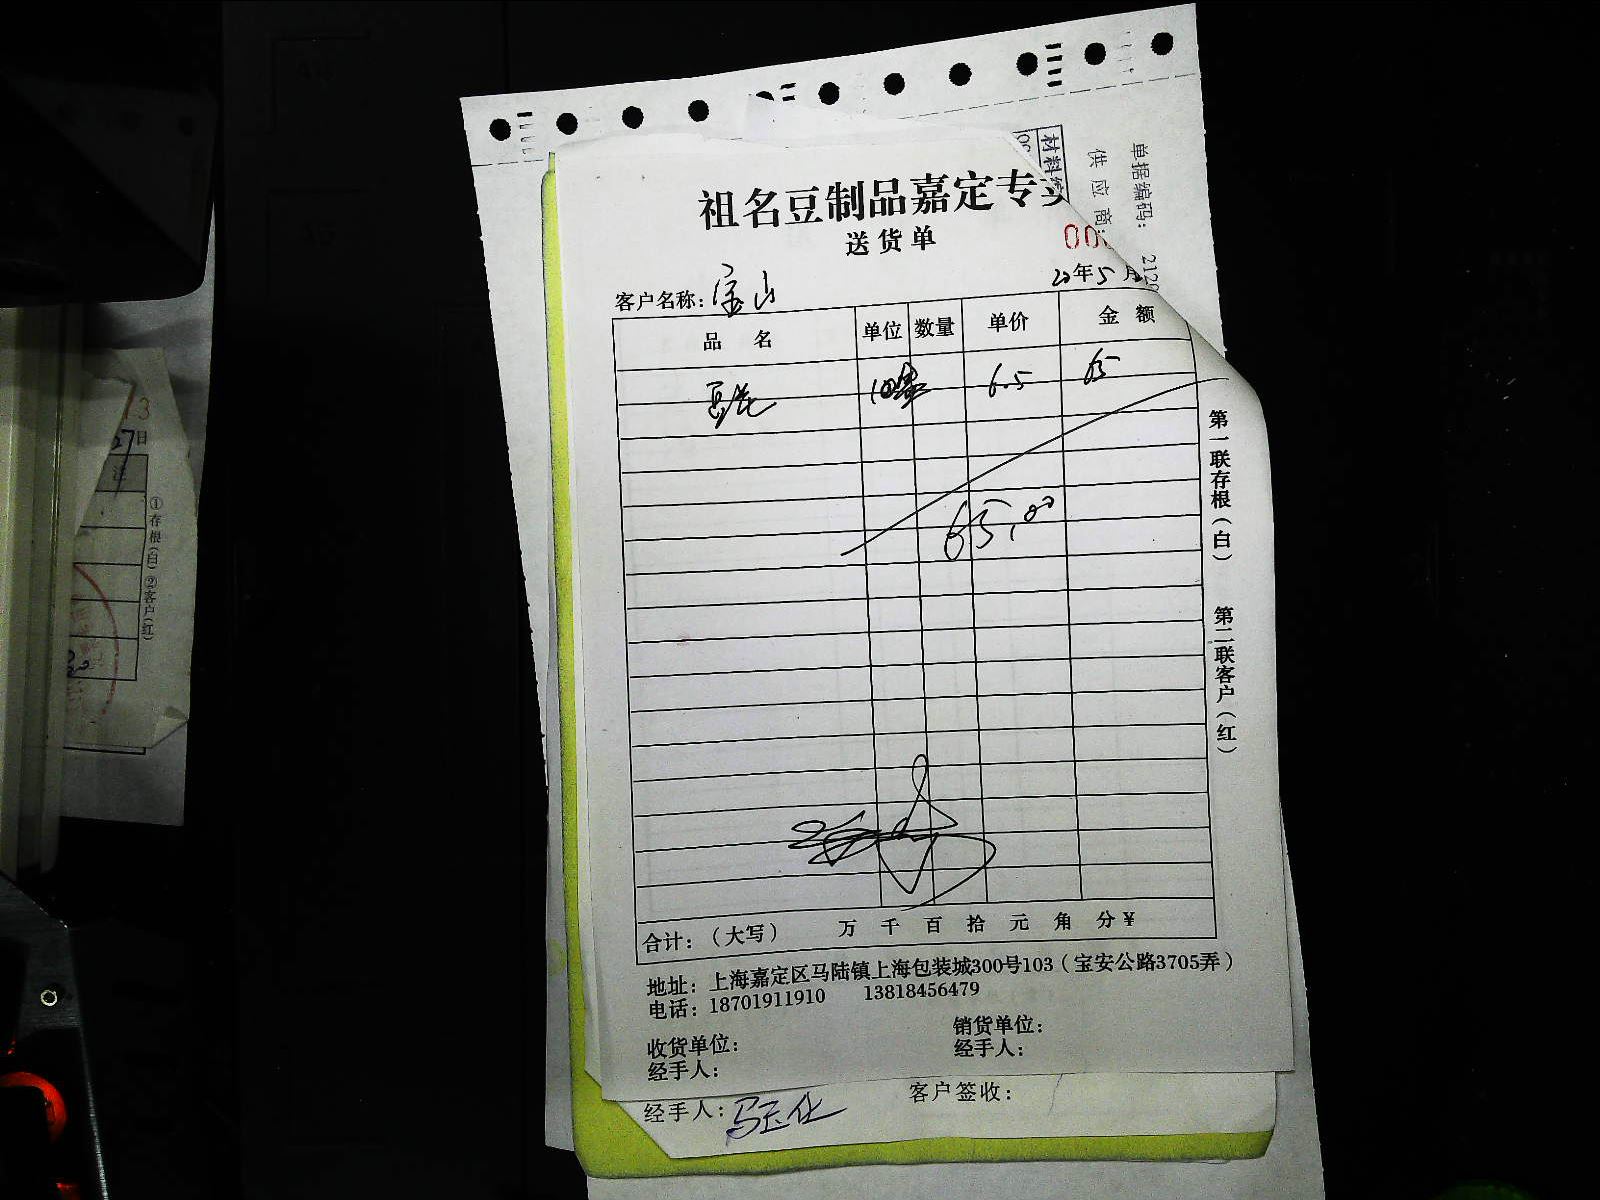 单据编码： 212
供应商：
材料
祖名豆制品嘉定专卖
送货单
00
客户名称：宝山
20年5月
品 名 单位 数量 单价 金 额
豆花 10 6.5 65
65.00
合计：（大写） 万 千 百 拾 元 角 分 ¥
地址：上海嘉定区马陆镇上海包装城300号103（宝安公路3705弄）
电话：18701911910 13818456479
收货单位： 销货单位：
经手人： 经手人：
经手人： 客户签收：
第一联存根（白） 第二联客户（红）
3
27日
①存根（白）②客户（红）